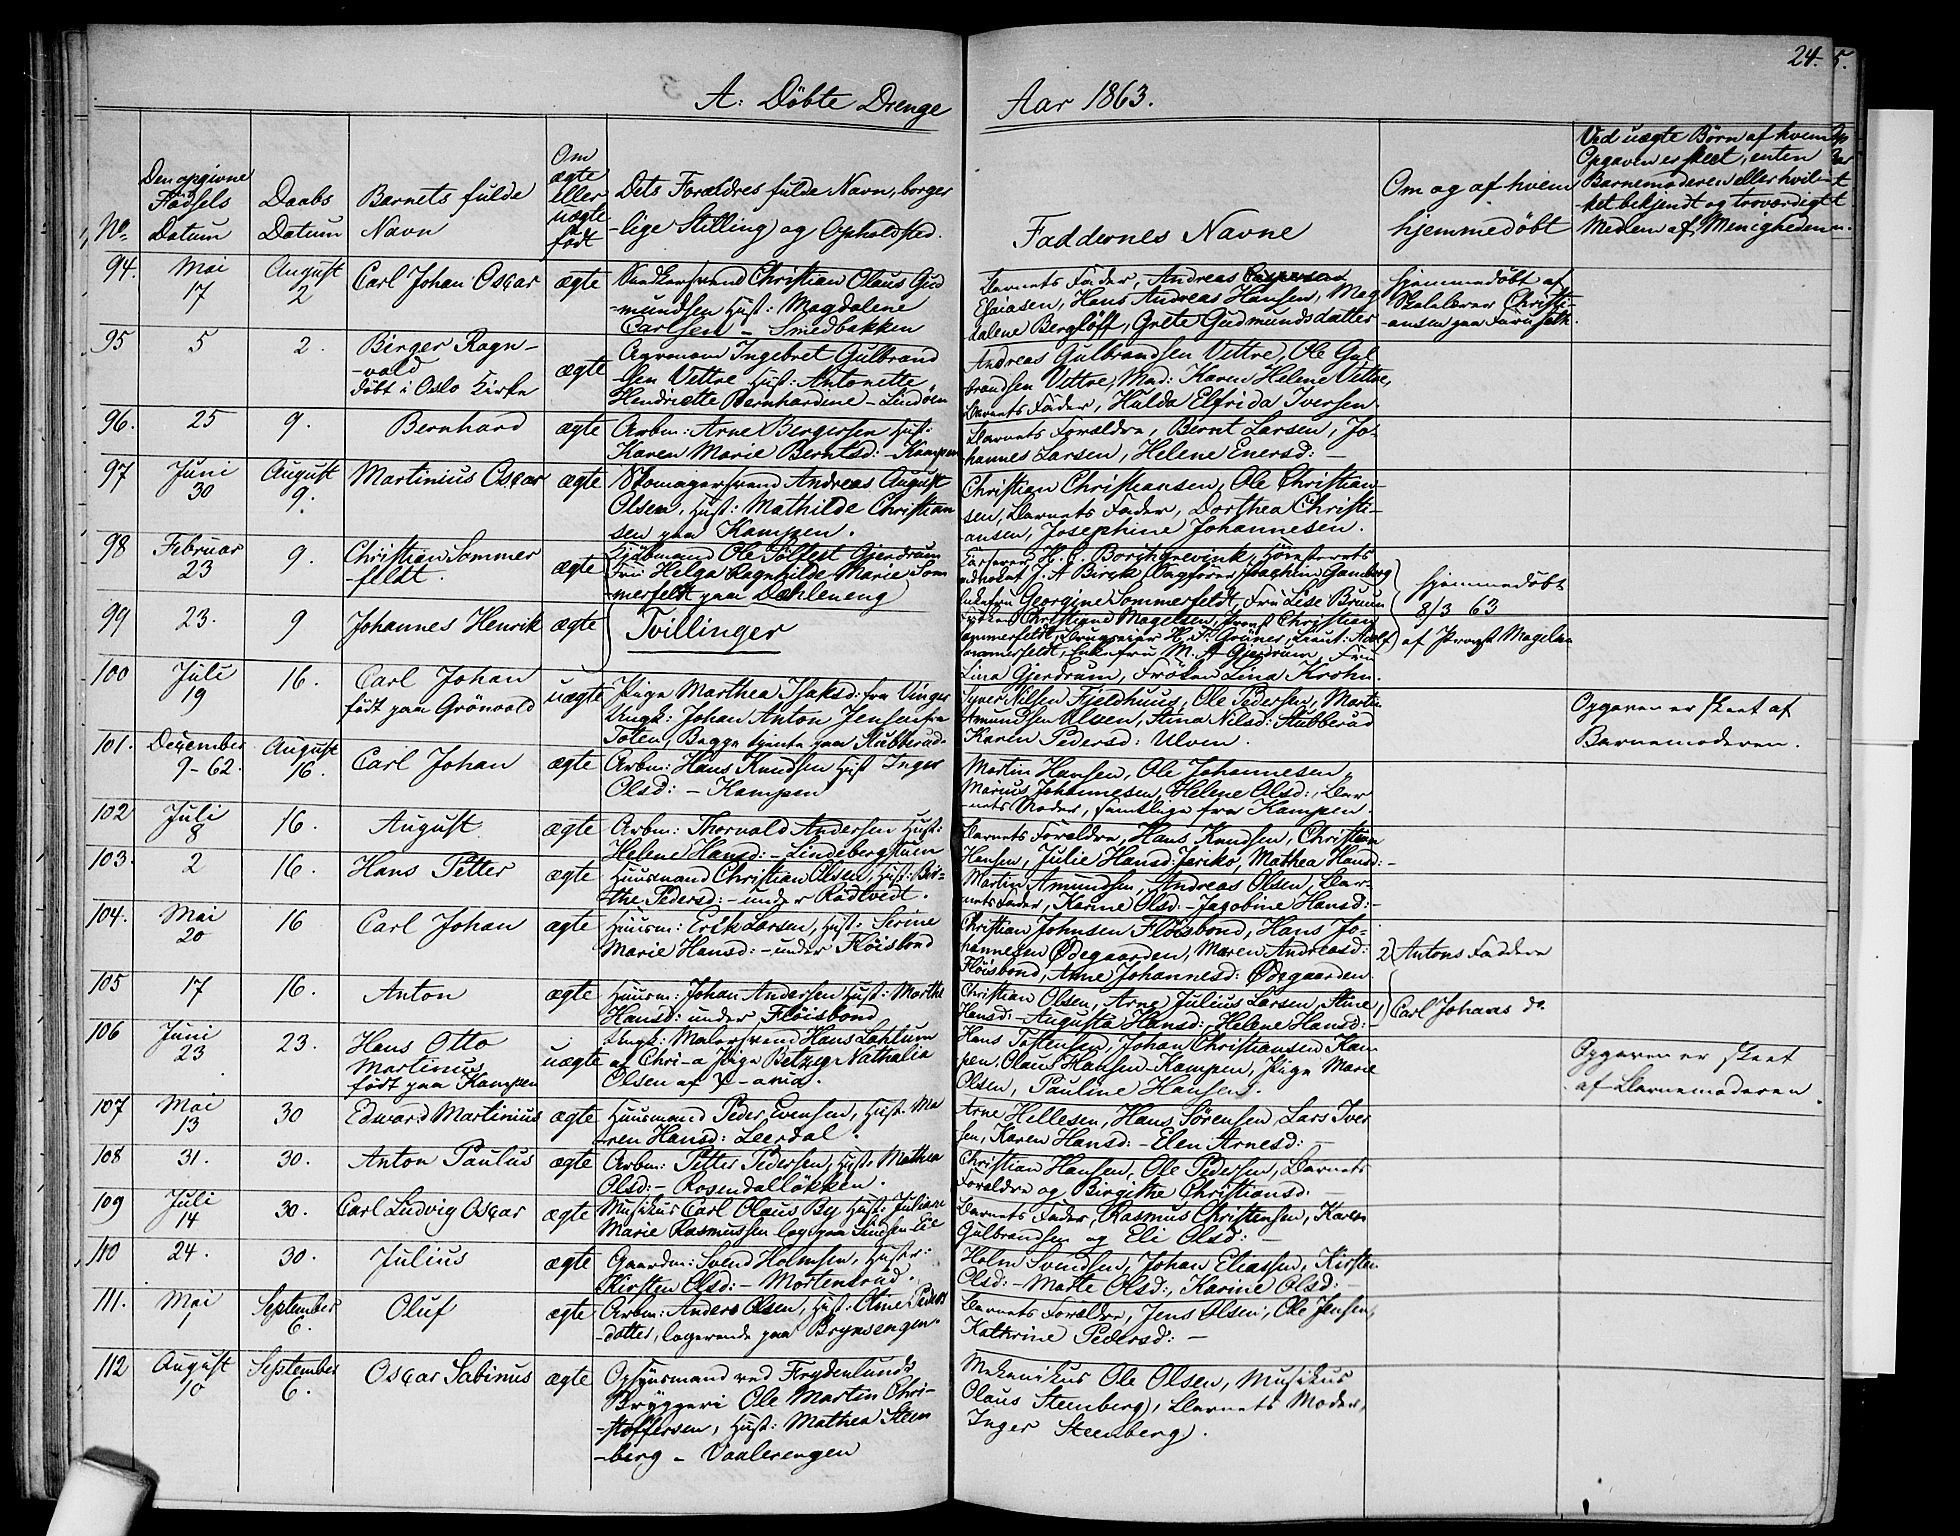 24.
5.
A: Döbte Drenge
Aar 1863.
No.
Den opgivne
Fødsels
Datum
Daabs
Datum
Barnets fulde
Navn
Om
ægte
eller
uægte
født
Dets Forældres fulde Navn, borger
-lige Stilling og Opholdsted.
Faddernes Navne
Om og af hvem
hjemmedöbt
Ved uægte Børn af hvem
Opgaven er skeet, enten
Barnemoderen eller hvil-
-ket bekjendt og troværdigt
Medlem af Menigheden
94. Mai 17 August 2 Carl Johan Oscar ægte
Snedkersvend Christian Olaus Gud
-mundsen Hust: Magdalene
Carlsen - Smedbakken
Barnets Fader, Andreas
Esaiasen, Hans Andreas Hansen, Mag
dalene Bergløff, Grete Gudmundsdatter
hjemmedöbt af
Skolelærer Christi-
-ansen paa
95 5 2. Birger Ragn-
-vald
döbt i Oslo Kirke
ægte
Agronom Ingebret Gulbrand
sen Vettre Hust: Antonette
Hendriette Bernhardine - Lindöen
Andreas Gulbrandsen Vettre, Ole Gul
brandsen Vettre, Mad: Karen Helene Vettre,
Barnets Fader, Hulda Elfrida Iversen.
96. 25 9. Bernhard ægte
Arbm: Arne Bergersen Hust:
Karen Marie Berntsd: - Kampen
Barnets Forældre, Bernt Larsen, Jo-
hannes Larsen, Helene Enersd: -
97 Juni 30 August 9. Martinius Oscar ægte
Skomagersvend Andreas August
Olsen, Hust: Mathilde Christian
sen paa Kampen.
Christian Christiansen, Ole Christian-
sen, Barnets Fader, Dorthea Christi-
ansen, Josephine Johannesen.
98 Februar 23 9. Christian Sommer
-feldt.
ægte
Ole Tollest Gjerdrum
Fru Helga Ragnhilde Marie Som
merfeldt paa Dæhleneng
H. C. Borchgrevink, Höiesterets
advocat J. A Birch, Sagfører Joachim Gamborg
Enkefru Georgine Sommerfeldt, Fru Lise Bruun
Frøken Christiane Magelsen, Provst Christian
Sommerfeldt, Brugseier H. Fr: Grüner, Lieut: Adolf
Sommerfeldt, Enkefru M. A Gjerdrum, Fru
Lina Gjerdrum, Frøken Lina Krohn.
hjemmedöbt
8/3 63
af Provst Magelsen
99 23. 9 Johannes Henrik ægte
Tvillinger
100 Juli 19 16. Carl Johan
födt paa Grönvold
uægte
Pige Marthea Isaksd: fra Vinger
Ungk: Johan Anton Jensen fra
Toten, Begge tjente paa Stubberud.
Syver Nilsen Fjeldhuus, Ole Pedersen, Martin
Amundsen Ulven, Stina Nilsd: Stubberud
Karen Pedersd: Ulven.
Opgaven er skeet af
Barnemoderen.
101. December 9-62. August 16. Carl Johan ægte
Arbm: Hans Knudsen Hust Inger
Olsd: - Kampen
Martin Hansen, Ole Johannesen,
Marius Johannesen, Helene Olsd:, Bar
-nets Moder, samtlige fra Kampen.
102 Juli 8 16. August ægte
Arbm: Thorvald Andersen Hust:
Helene Hansd: - Lindebergstuen
Barnets Forældre, Hans Knudsen, Christian
Hansen, Julie Hansd: Jeriko, Mathea Hansd: -
103. 2 16. Hans Petter ægte
Huusmand Christian Olsen, Hust: Bir-
the Pedersd: - under Rödtvedt.
Martin Amundsen, Andreas Olsen, Bar-
nets Fader, Karine Olsd: - Jagobine Hansd: -
104. Mai 20 16 Carl Johan ægte
Huusm: Erik Larsen, Hust: Serine
Marie Hansd: - under Flöisbond
Christian Johnsen Flöisbond, Hans Jo-
hannesen Ødegaarden, Maren Andreasd:
Flöisbond, Arne Johannesd: Ødegaarden.
2) Antons Faddere
105 17 16. Anton ægte
Huusm: Johan Andersen Hust: Marthe
Hansd: under Flöisbond
Christian Olsen, Arne Julius Larsen, Stine
Hansd: - Augusta Hansd:, Helene Hansd: -
1) Carl Johans do
106 Juni 23 23. Hans Otto
Martinus
födt paa Kampen
uægte
Ungk: Malersvend Hans Lohlum
af Chri-a Pige Betzeg Nathalia
Olsen af X-ania.
Hans Tostensen, Johan Christiansen Kam-
pen, Olaus Hansen Kampen, Pige Marie
Olsen, Pauline Hansen.
Opgaven er skeet
af Barnemoderen.
107 Mai 13 30 Edvard Martinius ægte
Huusmand Peder Evensen, Hust. Ma
ren Hansd: Leerdal.
Arne Hellesen, Hans Sörensen, Lars Iver
sen, Karen Hansd: - Elen Arnesd: -
108 31. 30. Anton Paulus ægte
Arbm: Petter Pedersen, Hust: Mathea
Olsd: - Rosendallökken.
Christian Hansen, Ole Pedersen, Barnets
Forældre og Birgithe Christiansd:
109 Juli 14 30. Carl Ludvig Oscar ægte
Musikus Carl Olaus By Hust: Juliane
Marie Rasmussen log: paa
Barnets Fader, Rasmus Christensen, Karen
Gulbrandsen og Eli Olsd: -
110 24. 30. Julius ægte
Gaardm: Svend Holmsen, Hustr:
Kirsten Olsd: - Mortensrud.
Holm Svendsen, Johan Eliassen, Kirsten
Olsd: - Mathe Olsd:, Karine Olsd: -
111. Mai 1 September 6. Oluf ægte
Arbm: Anders Olsen, Hust: Oline Peders
-datter, logerende paa Brynsengen.
Barnets Forældre, Jens Olsen, Ole Jensen,
Kathrine Pedersd: -
112 August 10 September 6. Oscar Sabinus ægte
Opsynsmand ved Frydenlunds
Bryggeri Ole Martin Chri-
-stoffersen, Hust: Mathea Steen
-berg - Vaalerengen
Mekanikus Ole Olsen, Musikus
Olaus Steenberg, Barnets Moder,
Inger Steenberg.